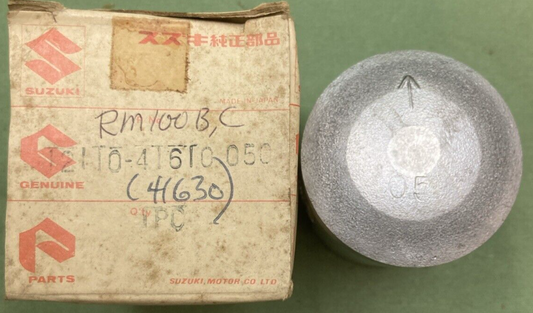 SUZUKI
スズキ純正部品
MADE IN JAPAN
RM100B,C
12110-41610-050
GENUINE
(41630)
Q'TY
1PC
PARTS
SUZUKI MOTOR CO.,LTD.
0.5